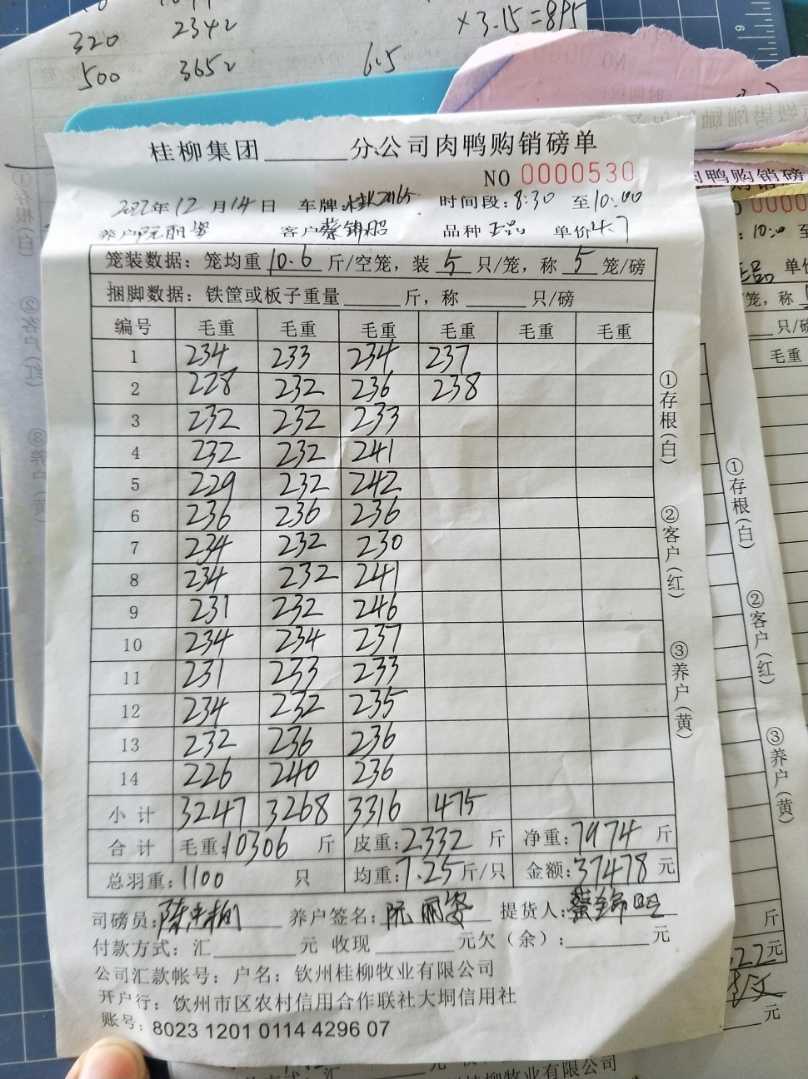 320 2342 ×3.15=895
500 3652 6.5
桂柳集团 分公司肉鸭购销磅单
NO 0000530
2022年12月14日 车牌 时间段:8:30 至10:00
养户阮丽姿 客户蔡锦昭 品种 单价4.7
笼装数据:笼均重10.6斤/空笼,装5只/笼,称5笼/磅
捆脚数据:铁筐或板子重量 斤,称 只/磅
编号 毛重 毛重 毛重 毛重 毛重 毛重
1 234 233 234 237
2 228 232 236 238
3 232 232 233
4 232 232 241
5 229 232 242
6 236 236 236
7 234 232 230
8 234 232 241
9 231 232 246
10 234 234 237
11 231 233 233
12 234 232 235
13 232 236 236
14 226 240 236
小计 3247 3268 3316 475
合计 毛重:10306斤 皮重:2332斤 净重:7974斤
总羽重:1100只 均重:7.25斤/只 金额:37478元
司磅员: 养户签名:阮丽姿 提货人:蔡锦昭
付款方式:汇 元 收现 元欠(余): 元
公司汇款帐号:户名:钦州桂柳牧业有限公司
开户行:钦州市区农村信用合作联社大垌信用社
账号:8023 1201 0114 4296 07
①存根(白)
②客户(红)
③养户(黄)
肉鸭购销磅
0000
:10:00 至
品 单价
笼,称
只/磅
毛重
①存根(白)
②客户(红)
③养户(黄)
斤
22元
元
桂柳牧业有限公司